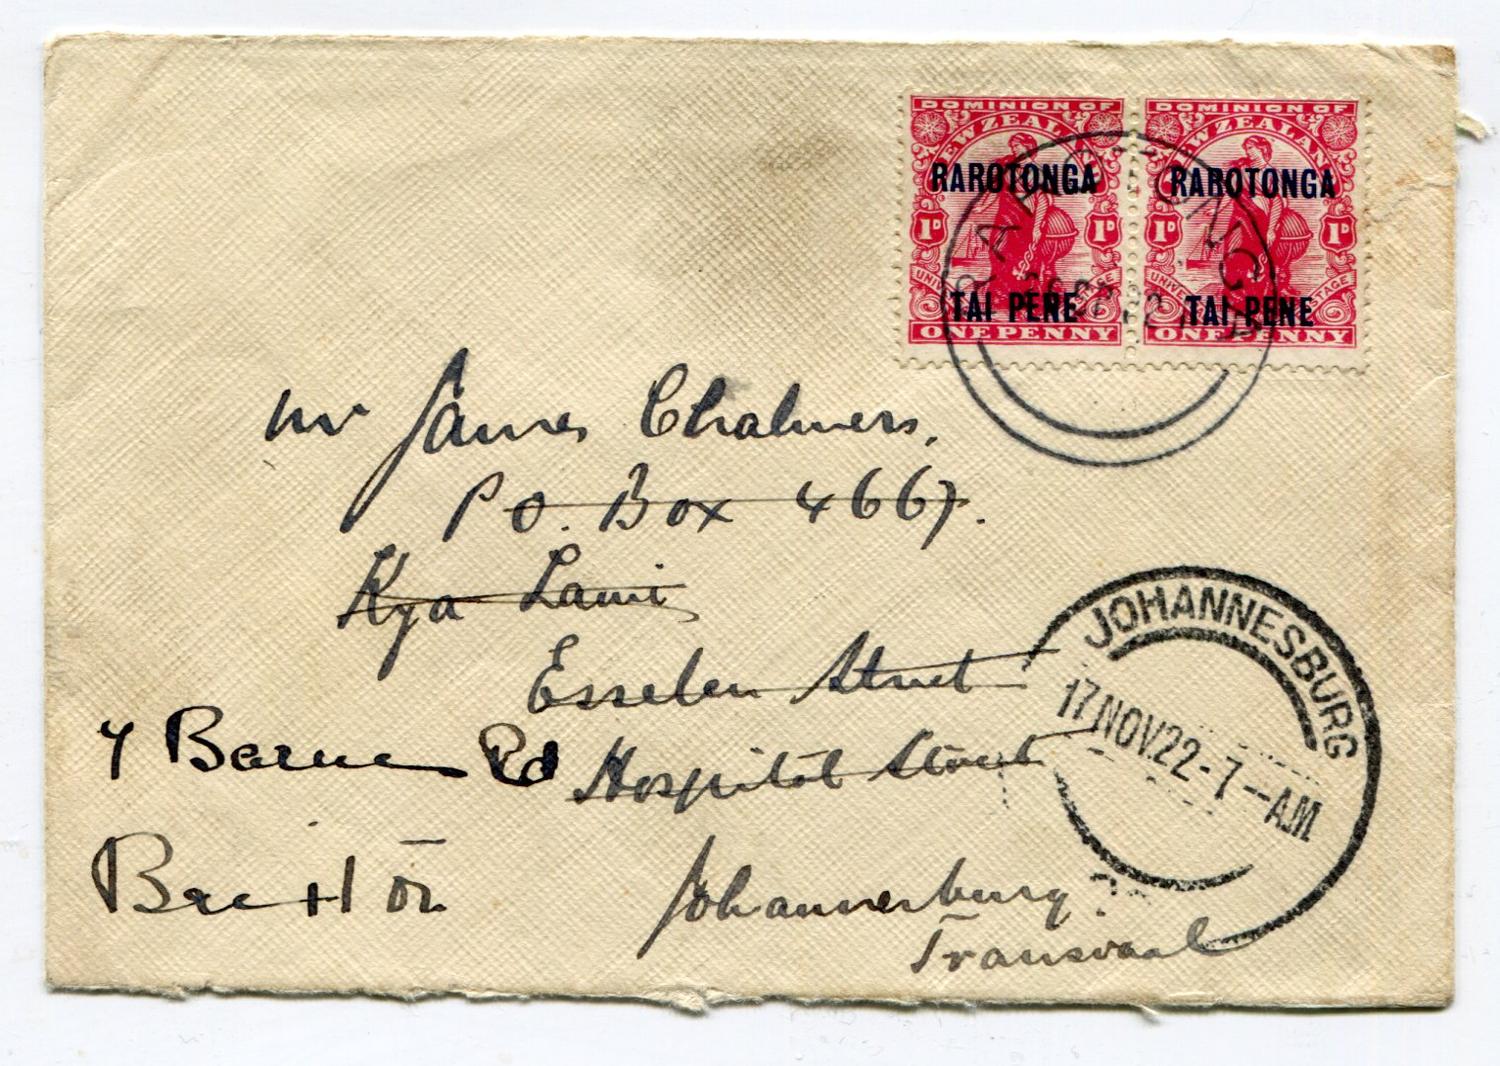 DOMINION OF DOMINION OF
NEW ZEALAND NEW ZEALAND
RAROTONGA RAROTONGA
1D 1D 1D 1D
TAI PENE TAI PENE
ONE PENNY ONE PENNY
RAROTONGA
22
Mr James Chalmers,
P O. Box 4667.
Kya Lami
Esselen Street
Hospital Street
Johannesburg
Transvaal
7 Barnes Rd
Brixton
JOHANNESBURG
17 NOV 22 - 7 - AM